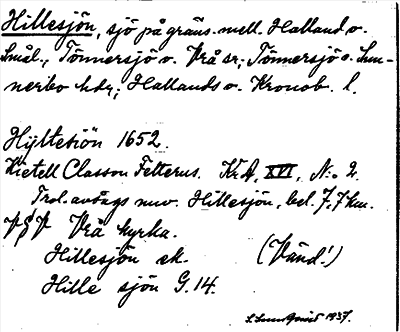 Hillesjön, sjö på gräns. mell. Halland o.
Smål., Tönnersjö o. Vrå sr; Tönnersjö o. Sun-
nerbo hdr; Hallands o. Kronob. l.
Hyltesiön 1652.
Kietell Classon Felterus. KrA, XVI, N:o 2.
Trol. avsågs nuv. Hillesjön, bel. 7,7 km.
VSV Vrå kyrka.
Hillesjön ek. (Vänd!)
Hille sjön G.14.
1937.